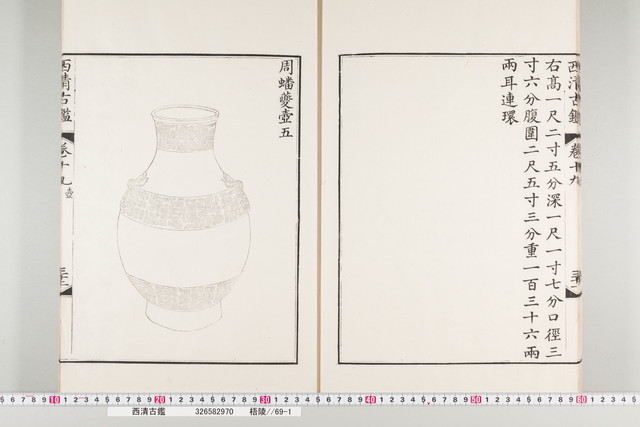 西清古鑑
卷十九
右高一尺二寸五分深一尺一寸七分口徑三
寸六分腹圍二尺五寸三分重一百三十六兩
兩耳連環
周蟠夔壺五
西清古鑑
卷十九 壺
西清古鑑 326582970 梧陵//69-1